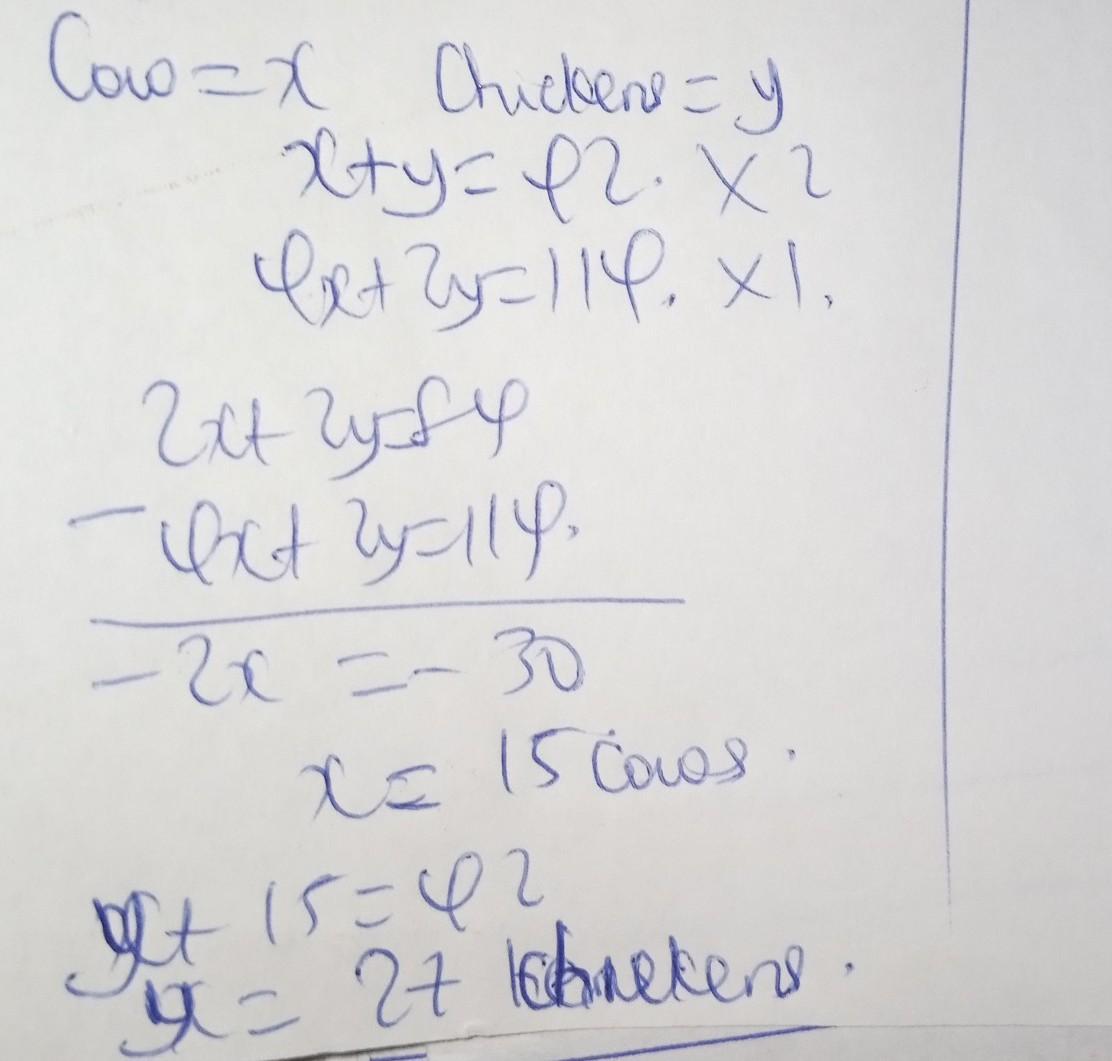 Cow = x Chickens = y
x + y = 42. × 2
4x + 2y = 114. × 1.
2x + 2y = 84
- 4x + 2y = 114.
- 2x = - 30
x = 15 Cows.
y + 15 = 42
y = 27 Chickens.